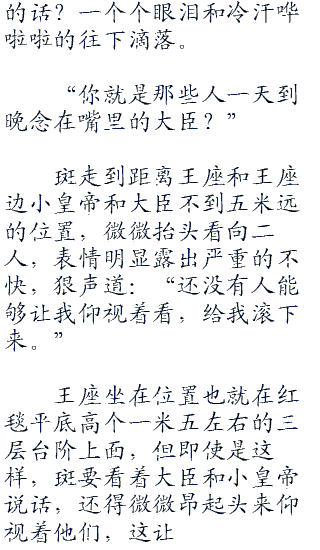 的话？一个个眼泪和冷汗哗
啦啦的往下滴落。
“你就是那些人一天到
晚念在嘴里的大臣？”
斑走到距离王座和王座
边小皇帝和大臣不到五米远
的位置，微微抬头看向二
人，表情明显露出严重的不
快，狠声道：“还没有人能
够让我仰视着看，给我滚下
来。”
王座坐在位置也就在红
毯平底高个一米五左右的三
层台阶上面，但即使是这
样，斑要看着大臣和小皇帝
说话，还得微微昂起头来仰
视着他们，这让